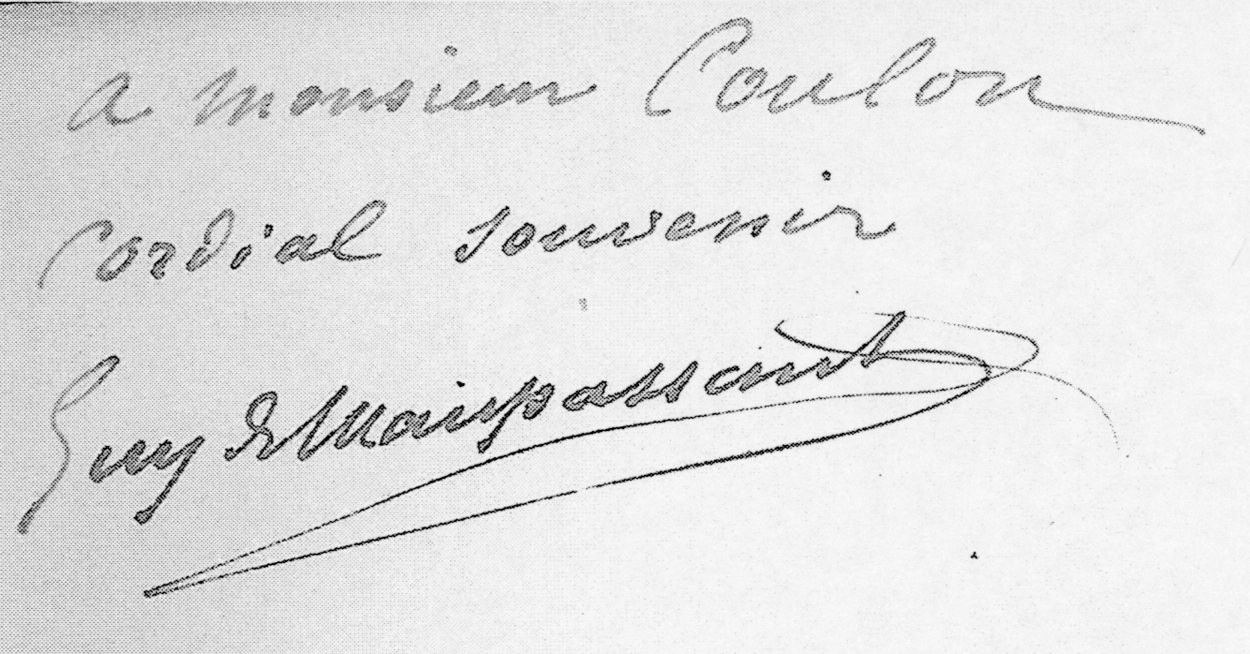 a monsieur Coulon
cordial souvenir
Guy de Maupassant